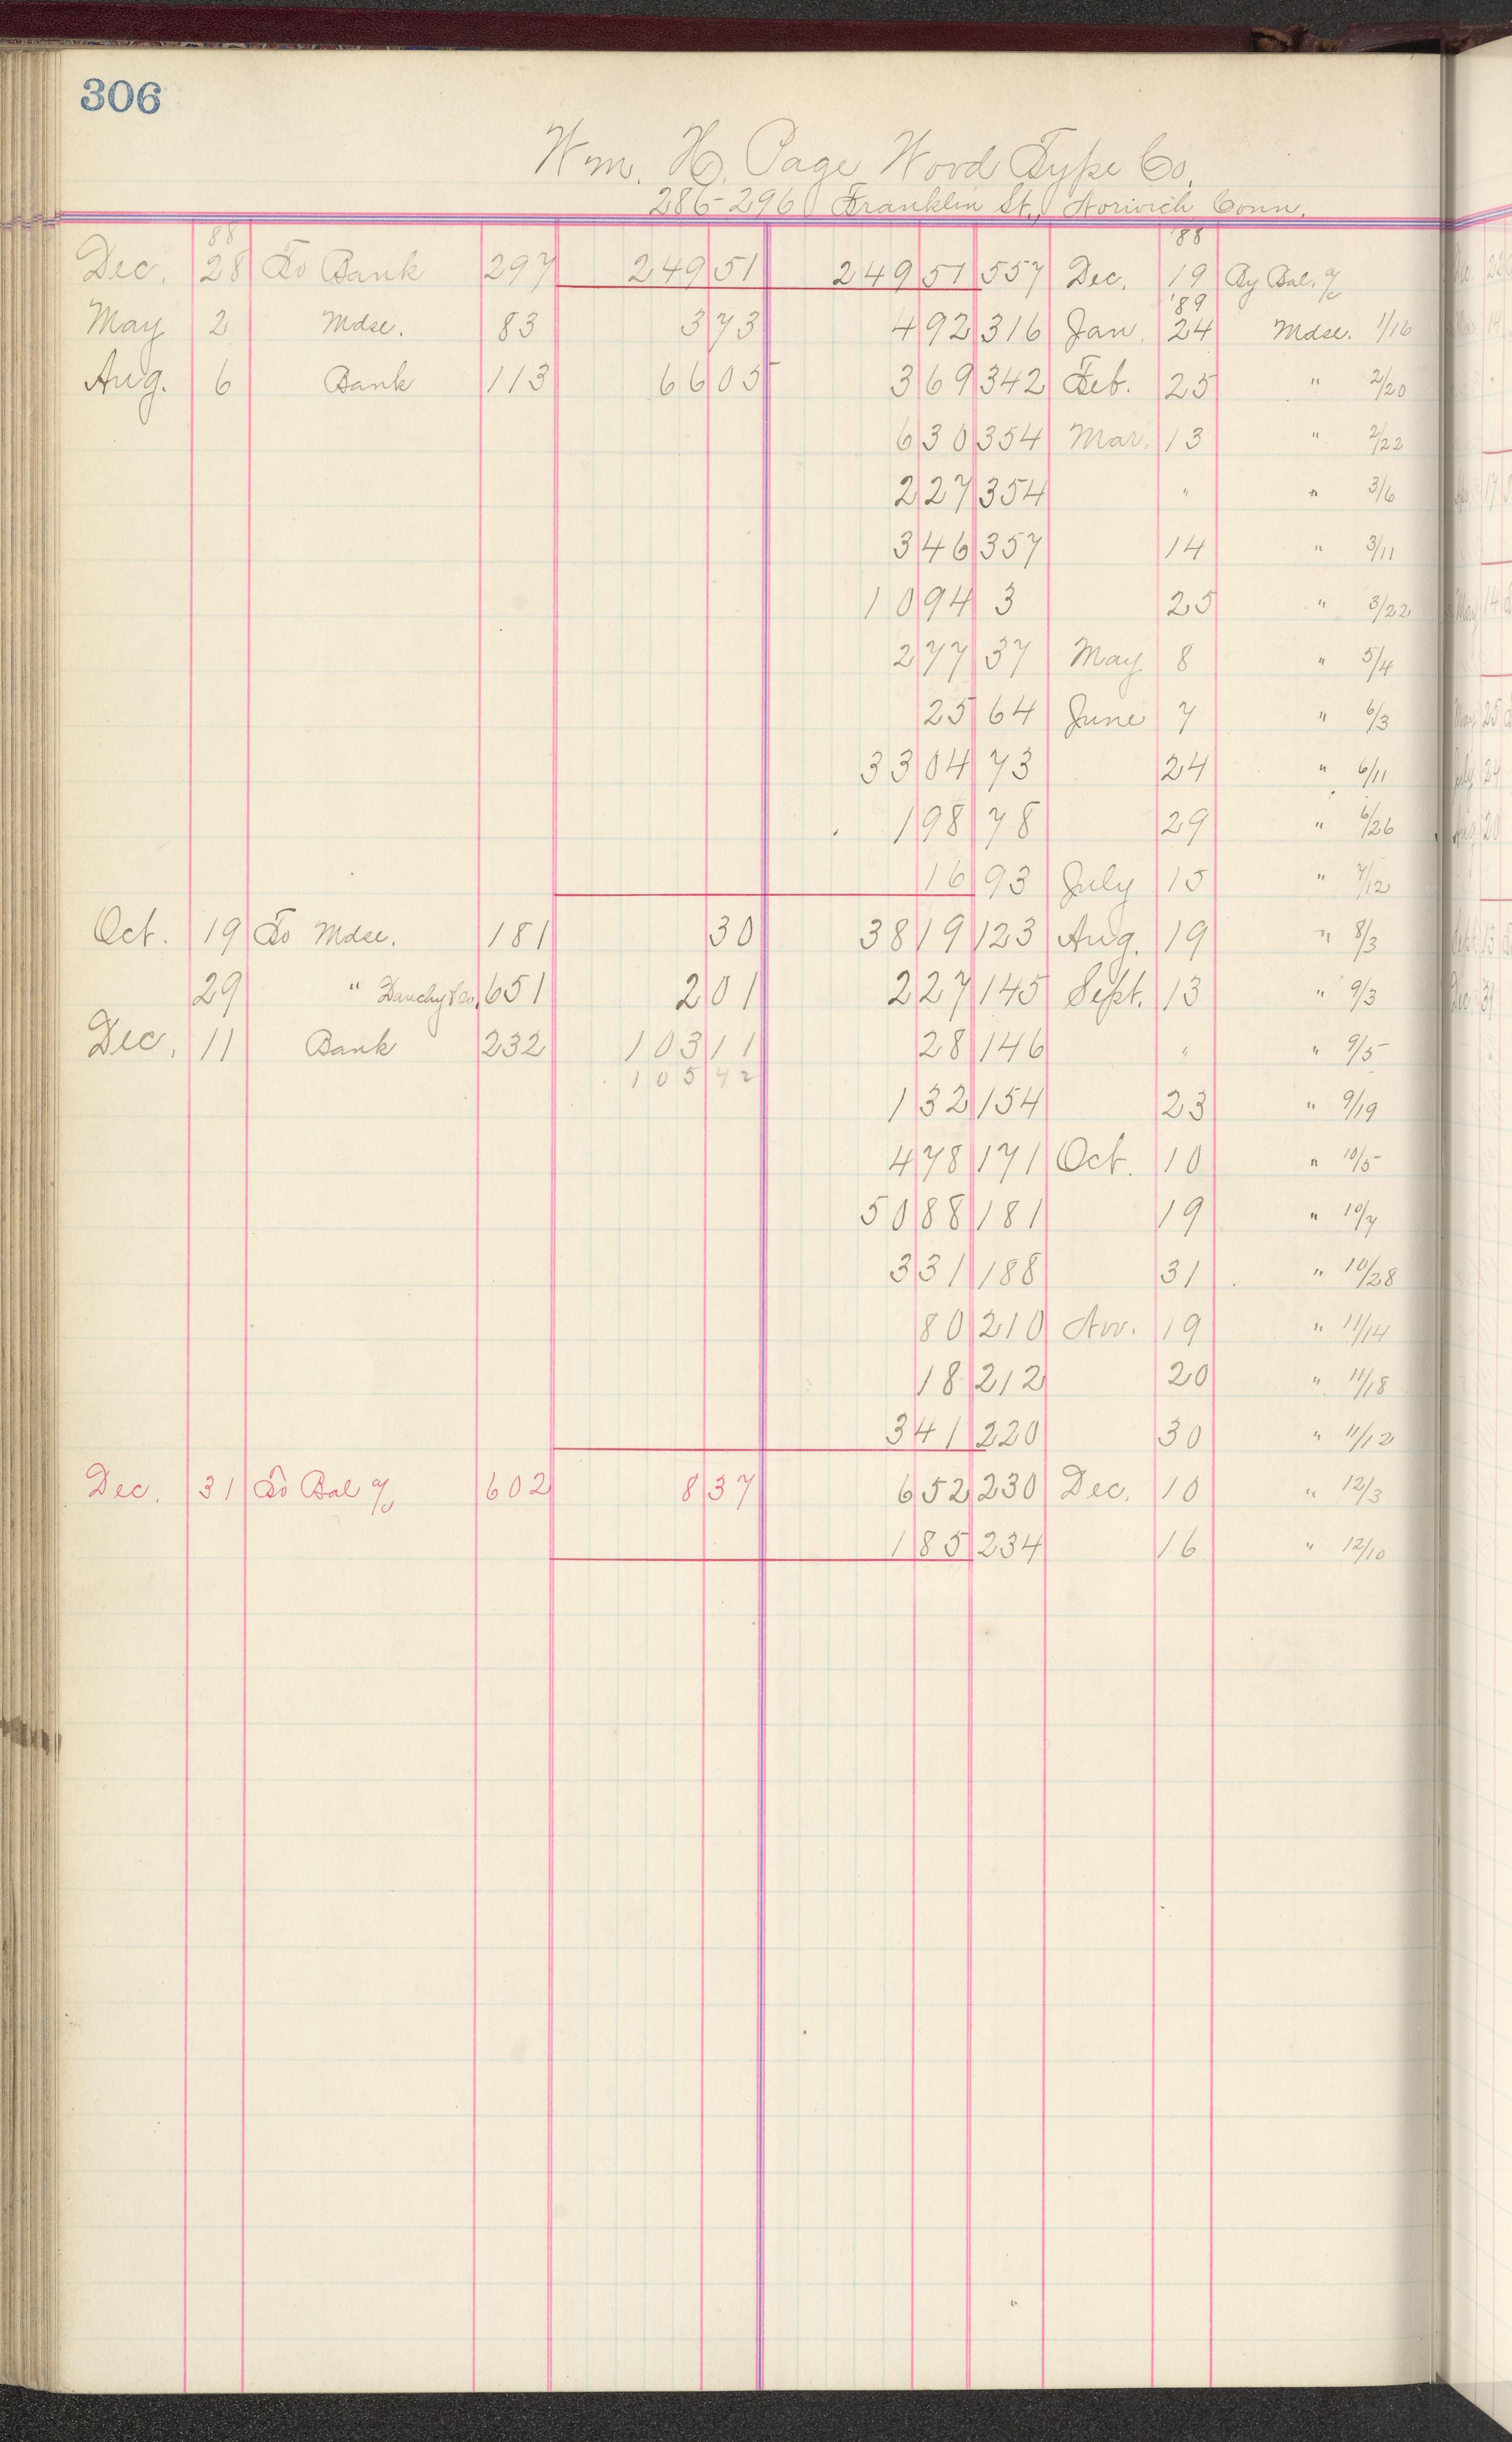 306
Wm. H. Page Wood Type Co.
286-296 Franklin St., Norwich Conn.
88 '88
Dec. 28 To Bank 297 249 51 249 51 557 Dec. 19 By Bal. a/c
'89
May 2 Mdse. 83 3 73 4 92 316 Jan. 24 Mdse. 1/16
Aug. 6 Bank 113 66 05 3 69 342 Feb. 25 " 2/20
6 30 354 Mar. 13 " 2/22
2 27 354 " " 3/6
3 46 357 14 " 3/11
10 94 3 25 " 3/22
2 77 37 May 8 " 5/4
25 64 June 7 " 6/3
33 04 73 24 " 6/11
1 98 78 29 " 6/26
16 93 July 15 " 7/12
Oct. 19 To Mdse. 181 30 38 19 123 Aug. 19 " 8/3
29 " Dauchy & Co. 651 2 01 2 27 145 Sept. 13 " 9/3
Dec. 11 Bank 232 103 11 28 146 " " 9/5
105 42
1 32 154 23 " 9/19
4 78 171 Oct. 10 " 10/5
50 88 181 19 " 10/7
3 31 188 31 " 10/28
80 210 Nov. 19 " 11/14
18 212 20 " 11/18
3 41 220 30 " 11/12
Dec. 31 To Bal a/c 602 8 37 6 52 230 Dec. 10 " 12/3
1 85 234 16 " 12/10